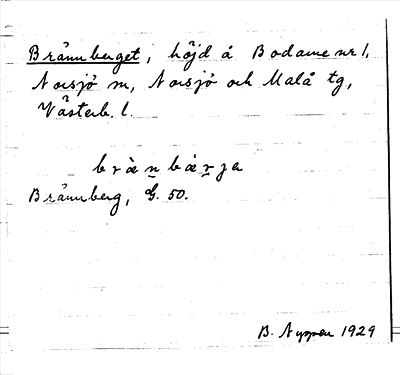 Brännberget, höjd å Bodarne nr 1,
Norsjö sn, Norsjö och Malå tg,
Västerb. l.
brànbærje
Brännberg, G. 50.
B. Nyman 1929